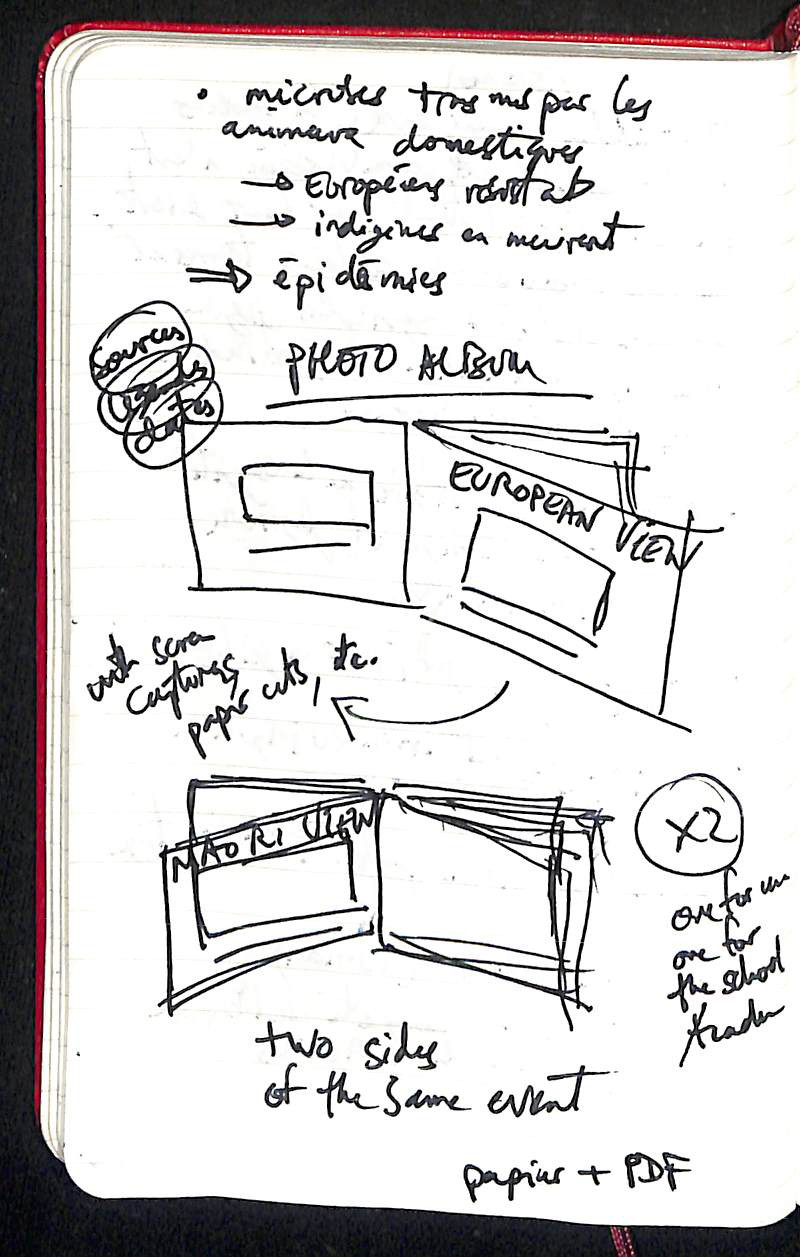 • microbes transmis par les
animaux domestiques
→ Européens résistent
→ indigènes en meurent
⇒ épidémies
sources
légendes
dates
PHOTO ALBUM
EUROPEAN VIEW
with screen
captures,
paper cuts, etc.
MAORI VIEW
X2
one for me
one for
the school
two sides
of the same event
papier + PDF